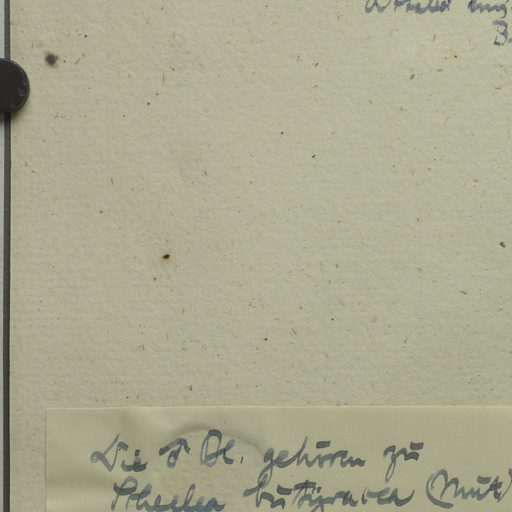 Die ♂ Bl. gehören zu
Scheelea butyracea (Mut